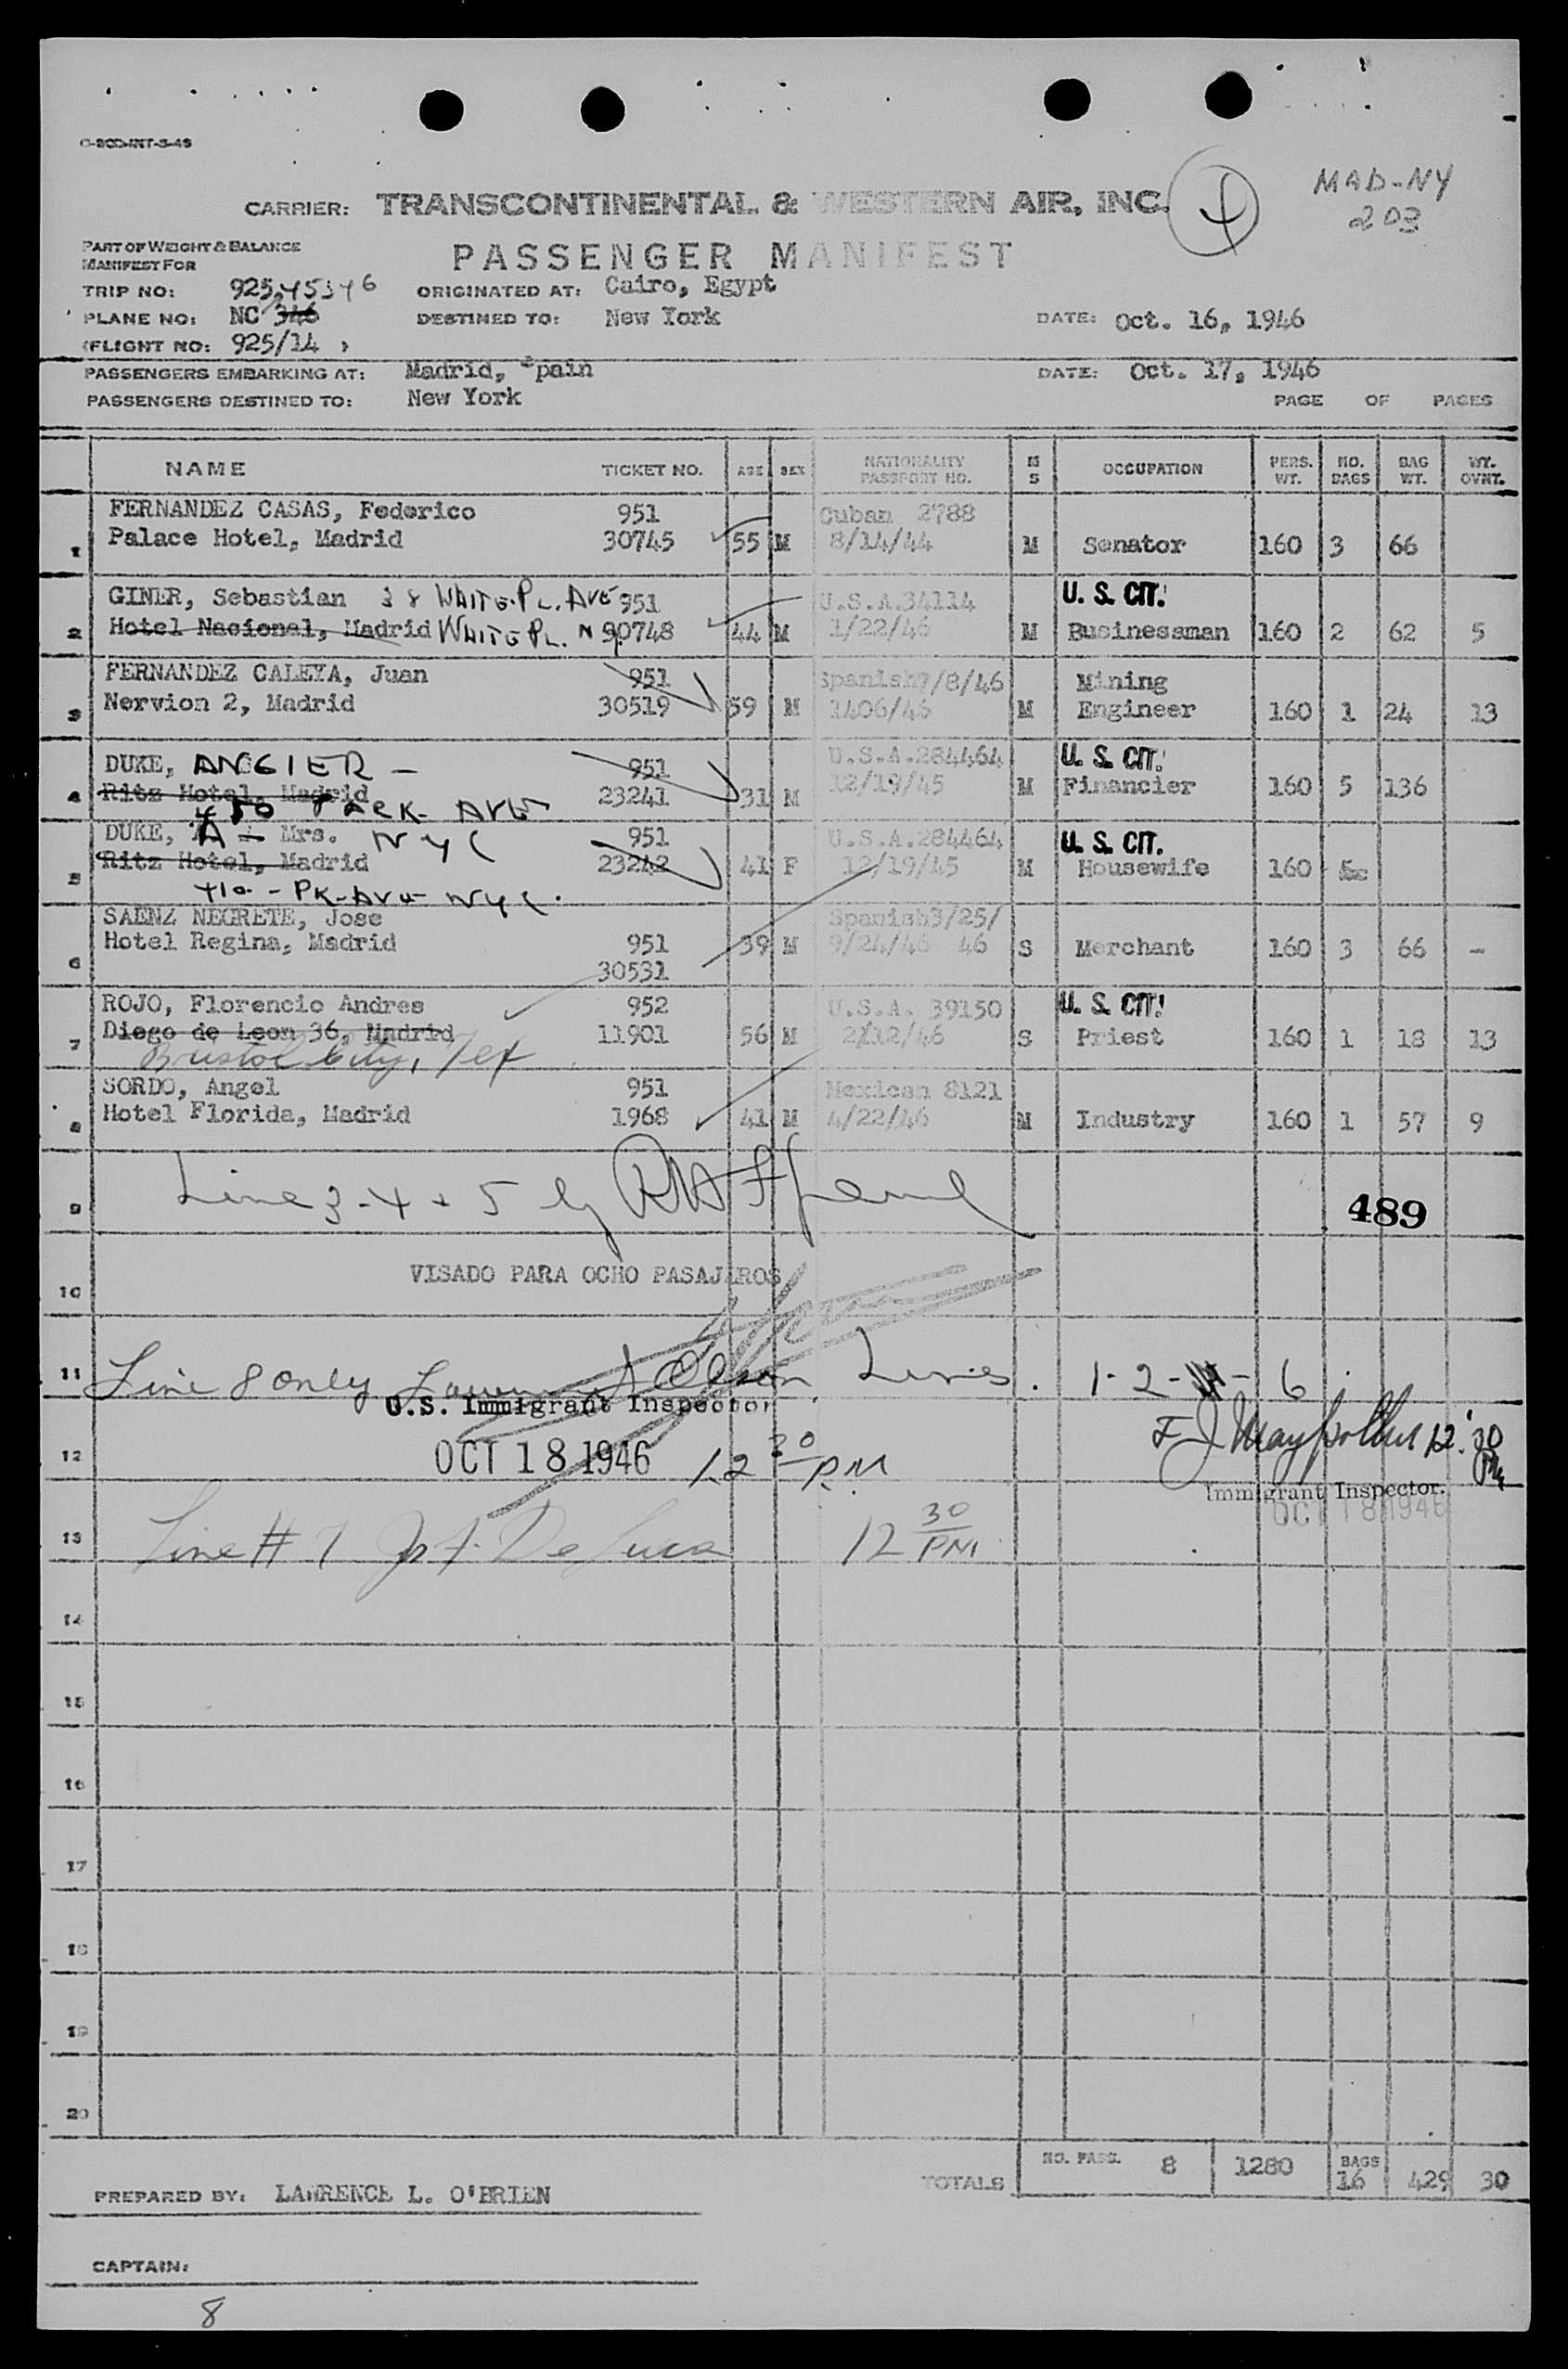 O-800-INT-3-46
MAD-NY
203
CARRIER: TRANSCONTINENTAL & WESTERN AIR, INC.
PART OF WEIGHT & BALANCE
MANIFEST FOR
PASSENGER MANIFEST
TRIP NO: 925 45346 ORIGINATED AT: Cairo, Egypt
PLANE NO: NC 346 DESTINED TO: New York DATE: Oct. 16, 1946
(FLIGHT NO: 925/14 )
PASSENGERS EMBARKING AT: Madrid, Spain DATE: Oct. 17, 1946
PASSENGERS DESTINED TO: New York PAGE OF PAGES
NAME TICKET NO. AGE SEX NATIONALITY PASSPORT NO. M S OCCUPATION PERS. WT. NO. BAGS BAG WT. WT. OVNT.
FERNANDEZ CASAS, Federico 951 Cuban 2788
1 Palace Hotel, Madrid 30745 55 M 8/14/44 M Senator 160 3 66
GINER, Sebastian 38 WHITE PL. AVE 951 U.S.A.34114 U. S. CIT.
2 Hotel Nacional, Madrid WHITE PL. NY 90748 44 M 1/22/46 M Businessman 160 2 62 5
FERNANDEZ CALEYA, Juan 951 Spanish7/8/46 Mining
3 Nervion 2, Madrid 30519 59 M 1406/46 M Engineer 160 1 24 13
DUKE, ANGIER - 951 U.S.A.284464 U. S. CIT.
4 Ritz Hotel, Madrid 23241 31 M 12/19/45 M Financier 160 5 136
PARK AVE
DUKE, A - Mrs. NYC 951 U.S.A.284464 U. S. CIT.
5 Ritz Hotel, Madrid 23242 41 F 12/19/45 M Housewife 160
- PK-AVE NYC.
SAENZ NEGRETE, Jose Spanish3/25/
6 Hotel Regina, Madrid 951 39 M 9/24/46 46 S Merchant 160 3 66 -
30531
ROJO, Florencio Andres 952 U.S.A. 39150 U. S. CIT.
7 Diego de Leon 36, Madrid 11901 56 M 2/12/46 S Priest 160 1 18 13
City, Tex
SORDO, Angel 951 Mexican 8121
8 Hotel Florida, Madrid 1968 41 M 4/22/46 M Industry 160 1 57 9
9 Line 3-4 + 5 by 489
10 VISADO PARA OCHO PASAJEROS
11 Line 8 only Olson Lines. 1-2- - 6
U.S. Immigrant Inspector
12 OCT 18 1946 12 30 PM 12:30 PM
Immigrant Inspector.
OCT 18 1946
13 Line # 7 De Luca 12 30 PM
14
15
16
17
18
19
20
TOTALS NO. PASS. 8 1280 BAGS 16 429 30
PREPARED BY: LAWRENCE L. O'BRIEN
CAPTAIN:
8